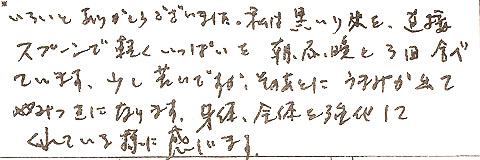 いろいとありがとうございました。私は黒いり玄米を、直接
スプーンで軽くいっぱいを朝、昼、晩と3回食べ
ています。少し苦いですが、そのあとにうまみが出て
やみつきになります。身体、全体を強化して
くれている様に感じます。